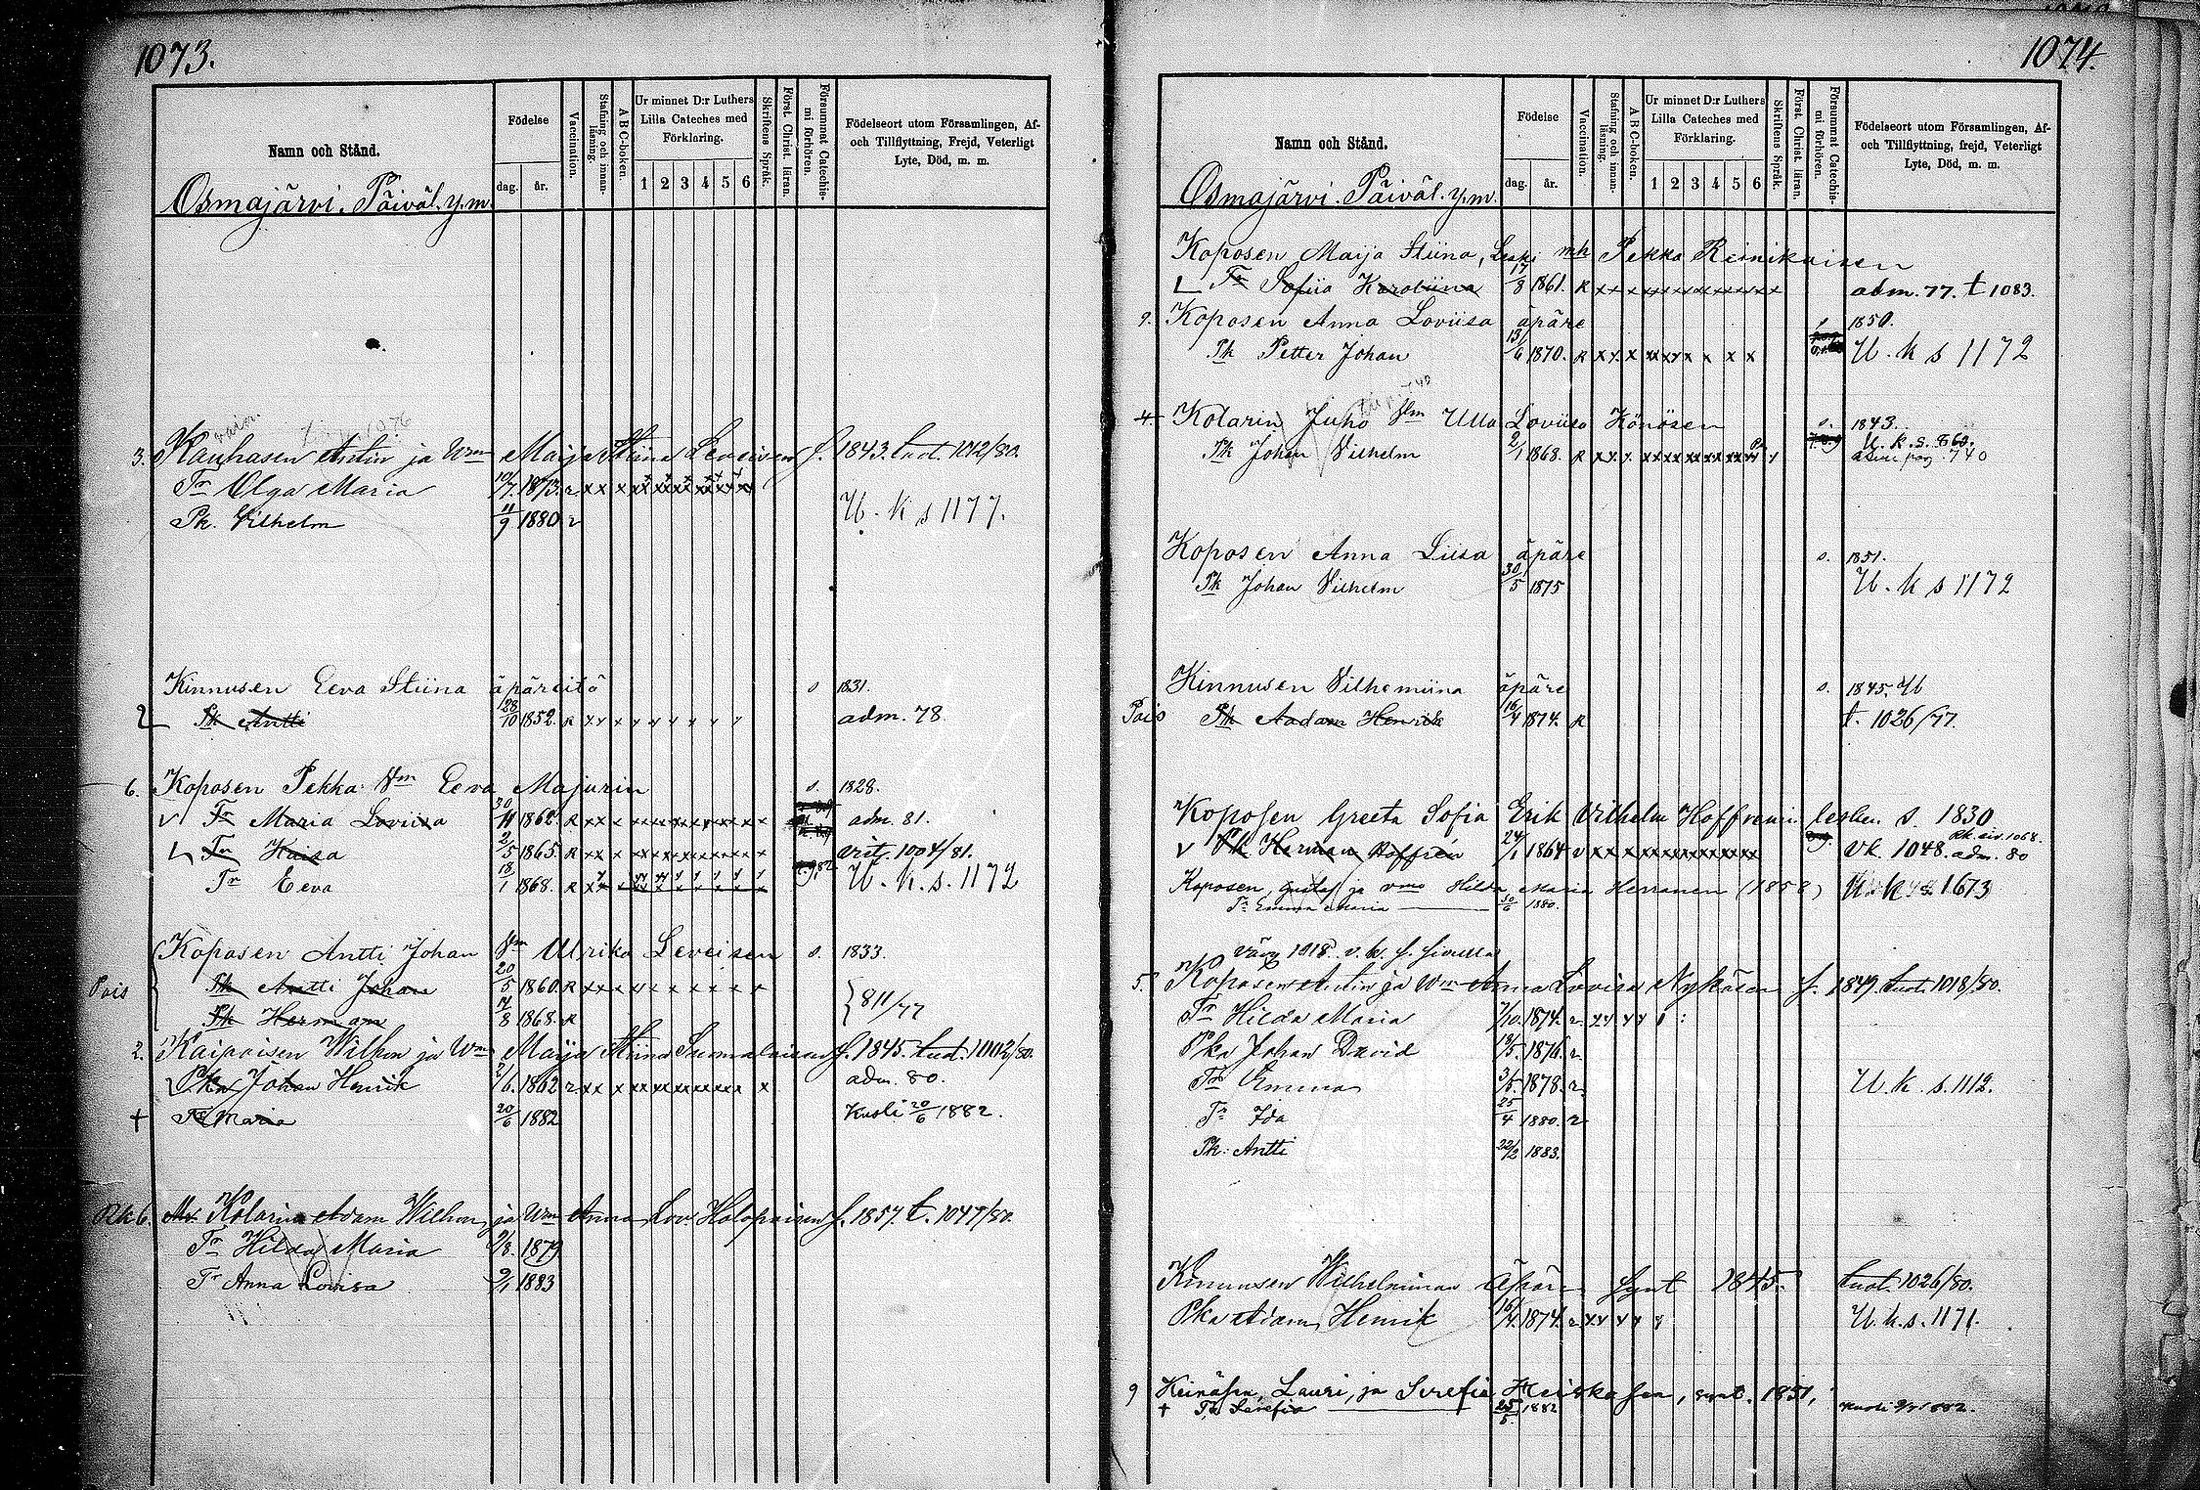 1073.
Namn och Stånd.
Födelse
dag.
år.
Vaccination.
Stafning och innanläsning.
A B C-boken.
Ur minnet D:r Luthers Lilla Cateches med Förklaring.
1 2 3 4 5 6
Skriftens Språk.
Först. Christ. läran.
Försummat Catechismi förhören.
Födelseort utom Församlingen, Af-
och Tillflyttning, Frejd, Veterligt
Lyte, Död, m. m.
Osmajärvi. Päiväl. y.m.
3. Kauhasen Antin ja Wm Maija Stiina Leveisen f. 1843. tuot. 1012/80.
Tr Olga Maria 10/7 1873. r
Pk. Vilhelm 11/9 1880 r
U. k s 1177.
Kinnusen Eeva Stiina äpäreitä s 1831.
Pk Antti 28/10 1852. R adm. 78.
6. Koposen Pekka Vm Eeva Majurin s. 1828.
Tr Maria Loviisa 30/11 1862. R adm. 81.
Tr Kaisa 2/5 1865. R 1004/81.
Tr Eeva 13/1 1868. R U. k. s. 1172
Koposen Antti Johan Vm Ulrika Leveisen s. 1833.
Pois Pk Antti Johan 20/5 1860. R
Pk Herman 14/8 1868. R 811/77
2. Kaipaisen Wilhon ja Wm Maija Stiina Suomalaisen f. 1845. tuot. 1002/80.
Pka Johan Henrik 2/6. 1862 r adm. 80.
† Tr Maria 20/6 1882 Kuoli 20/6 1882.
Rk 6. Kolarin Adam Wilhon ja Wm Anna Lov Holopaisen f. 1857. t. 1047/80.
Tr Hilda Maria 9/8. 1879
Tr Anna Lovisa 9/1 1883
1074.
Namn och Stånd.
Födelse
dag.
år.
Vaccination.
Stafning och innanläsning.
A B C-boken.
Ur minnet D:r Luthers Lilla Cateches med Förklaring.
1 2 3 4 5 6
Skriftens Språk.
Först. Christ. läran.
Försummat Catechismi förhören.
Födelseort utom Församlingen, Af-
och Tillflyttning, frejd, Veterligt
Lyte, Död, m. m.
Osmajärvi. Päiväl. y.m.
Koposen Maija Stiina, Leski mh Pekka Reinikaisen
Tr Sofiia Karoliina 17/8 1861. R adm. 77. t 1083.
9. Koposen Anna Loviisa äpäre 1850.
Pk Petter Johan 13/6 1870. R U. k s 1172
4 Kolarin Juho Vm Ulla Loviisa Könösen s. 1843.
Pk Johan Vilhelm 2/1 1868. R U. k. s. 860.
740
Koposen Anna Liisa äpäre s. 1851.
Pk Johan Vilhelm 30/5 1875 U. k s 1172
Kinnusen Vilhemiina äpäre s. 1845. U
Pois Pk Aadam Henrik 16/4 1874. R t. 1026/77.
Koposen Greeta Sofia Erik Vilhelm Hoffreni lesken s. 1830
Pk Herman Hoffrén 24/1 1864 v Vk. 1048. adm. 80
Koposen, Gustaf ja vmo Hilda Maria Herranen (1858) U. k s 1673
Tr Emma Maria 30/6 1880.
5. Koposen Antin ja Wm Anna Lovisa Nykäsen f. 1849. tuot. 1018/80.
Tr Hilda Maria 7/10. 1874. r.
Pka Johan David 13/5. 1876. r
Tr Emma 3/5. 1878. r U. k. s. 1112.
Tr Ida 25/4 1880. r
Pk. Antti 22/2 1883.
Kinnusen Wilhelminan Äpäre synt 1845. tuot. 1026/80.
Pka Adam Henrik 16/4. 1874. r U. k. s. 1171.
9 Keinäsen, Lauri, ja Serefia Heiskasen, synt. 1851,
† Tr Serefia 25/5 1882